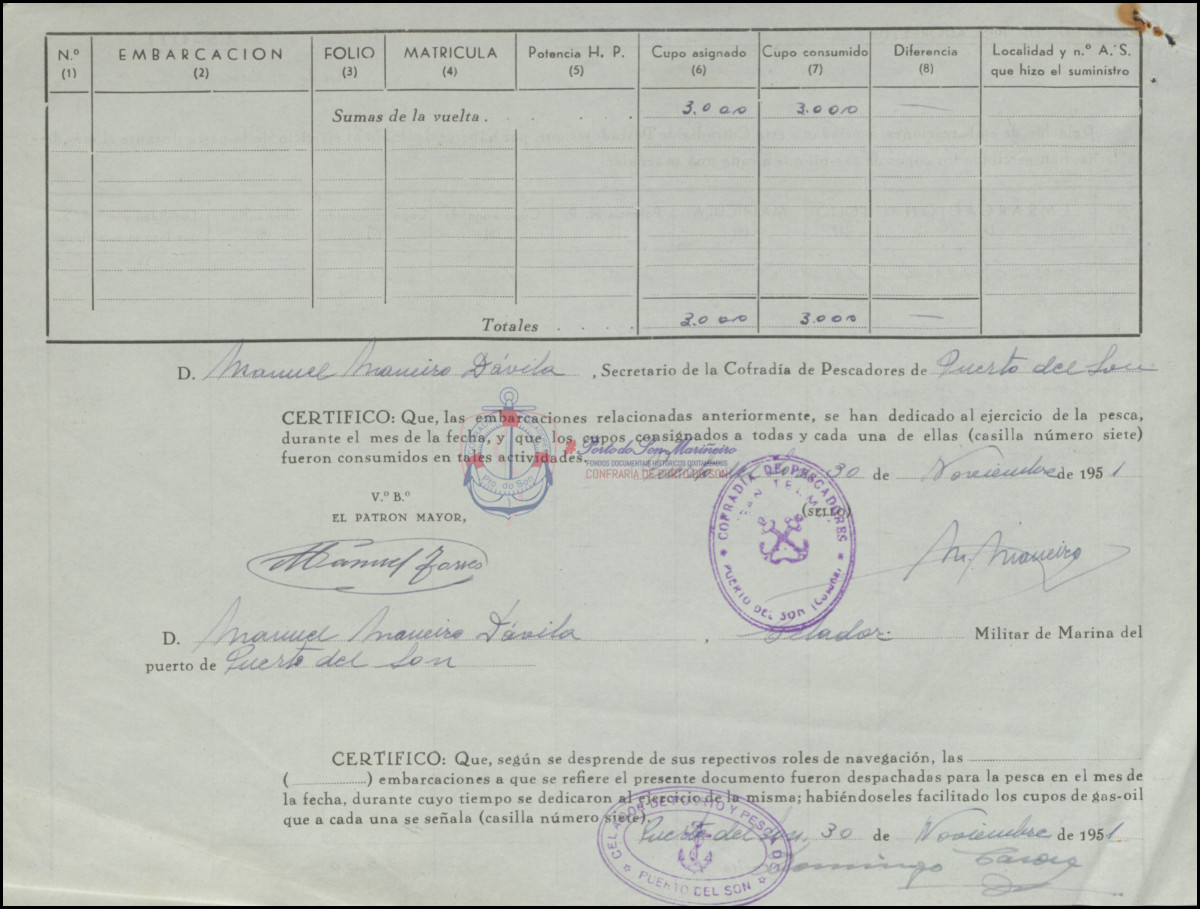 N.º EMBARCACION FOLIO MATRICULA Potencia H. P. Cupo asignado Cupo consumido Diferencia Localidad y n.º A. S.
(1) (2) (3) (4) (5) (6) (7) (8) que hizo el suministro
Sumas de la vuelta . . . . 3.000 3.000 —
Totales . . . . 3.000 3.000 —
D. Manuel Maneiro Dávila , Secretario de la Cofradía de Pescadores de Puerto del Son
CERTIFICO: Que, las embarcaciones relacionadas anteriormente, se han dedicado al ejercicio de la pesca,
durante el mes de la fecha, y que los cupos consignados a todas y cada una de ellas (casilla número siete)
fueron consumidos en tales actividades.
Porto do Son Mariñeiro
FONDOS DOCUMENTAIS HISTÓRICOS DIXITALIZADOS
CONFRARÍA DE PORTO DO SON
Pto. do Son
30 de Noviembre de 1951
V.º B.º
EL PATRON MAYOR,
(SELLO)
COFRADÍA DE PESCADORES
SAN TELMO
PUERTO DEL SON (CORUÑA)
Manuel Torres
M. Maneiro
D. Manuel Maneiro Dávila , Celador Militar de Marina del
puerto de Puerto del Son
CERTIFICO: Que, según se desprende de sus repectivos roles de navegación, las
( ) embarcaciones a que se refiere el presente documento fueron despachadas para la pesca en el mes de
la fecha, durante cuyo tiempo se dedicaron al ejercicio de la misma; habiéndoseles facilitado los cupos de gas-oil
que a cada una se señala (casilla número siete).
Puerto del Son 30 de Noviembre de 1951
CELADOR DE PUERTO Y PESCA DE
PUERTO DEL SON
Domingo